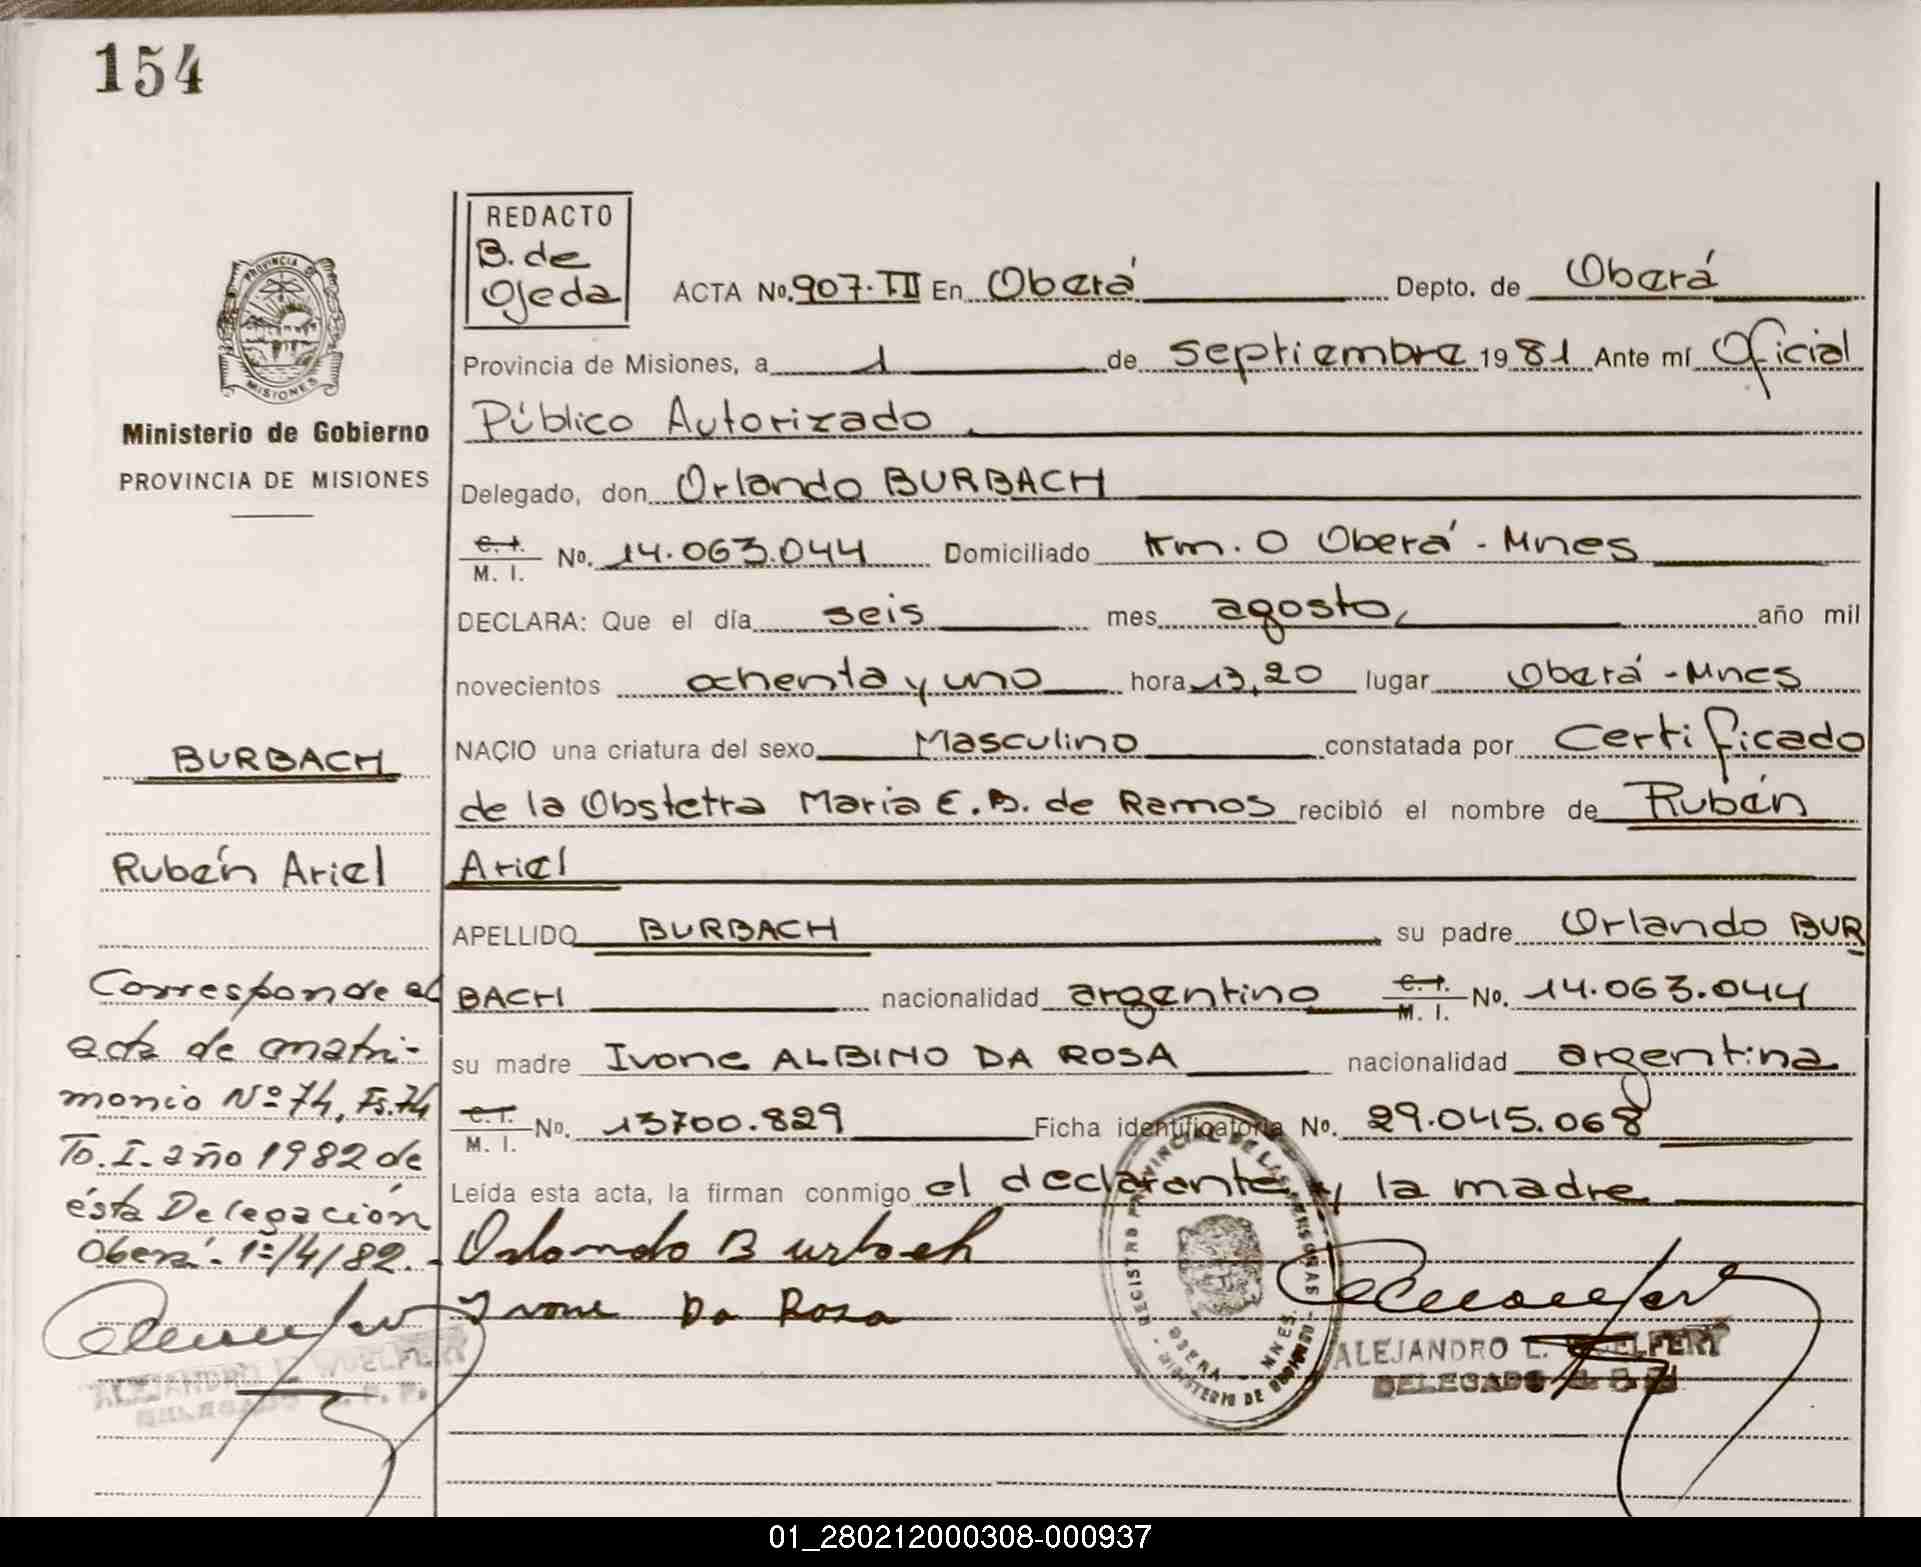 154
REDACTO
B. de
Ojeda
ACTA No. 907·TII En Oberá Depto. de Oberá
Provincia de Misiones, a 1 de septiembre 1981 Ante mí Oficial
Público Autorizado
Delegado, don Orlando BURBACH
C. I.
M. I. No. 14.063.044 Domiciliado Km. 0 Oberá - Mnes
DECLARA: Que el día seis mes agosto, año mil
novecientos ochenta y uno hora 13,20 lugar Oberá - Mnes
NACIO una criatura del sexo Masculino constatada por Certificado
de la Obstetra Maria E. B. de Ramos recibió el nombre de Rubén
Ariel
APELLIDO BURBACH su padre Orlando BUR
BACH nacionalidad argentino C. I.
M. I. No. 14.063.044
su madre Ivone ALBINO DA ROSA nacionalidad argentina
C. I.
M. I. No. 13700.829 Ficha identificatoria No. 29.045.068
Leída esta acta, la firman conmigo el declarante y la madre
Orlando Burbach
Ivone Da Rosa
ALEJANDRO L. WUELFERT
DELEGADO
REGISTRO PROVINCIAL DE LAS PERSONAS
OBERA - MNES.
MINISTERIO DE GOBIERNO
PROVINCIA DE
MISIONES
Ministerio de Gobierno
PROVINCIA DE MISIONES
BURBACH
Rubén Ariel
Corresponde al
acta de matri-
monio Nº 74, Fs. 74
To. I. año 1982 de
ésta Delegación
Oberá. 1º/4/82.-
ALEJANDRO L. WUELFERT
DELEGADO
01_280212000308-000937